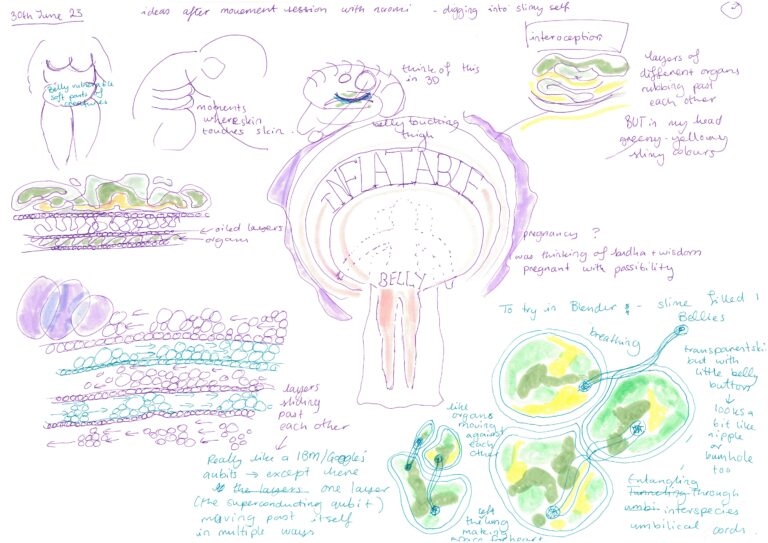 30th June 23
ideas after movement session with naomi - digging into slimy self
2
belly vulnerable
soft parts of
creatures
moments
where skin
touches skin.
think of this
in 3D
belly touching
thigh
interoception
layers of
different organs
rubbing past
each other
BUT in my head
greeny-yellowy
slimy colours
INFLATABLE
BELLY
oiled layers
organs
pregnancy?
was thinking of budha + wisdom
pregnant with possibility
layers
sliding
past
each other
Really like a IBM/Google's
qubits → except here
the layers one layer
(the superconducting qubit)
moving past itself
in multiple ways
To try in Blender - slime filled
Bellies
breathing
transparent ski
but with
little belly
button
looks a
bit like
nipple
or
bumhole
too
like
organs
moving
against
each
other
left
the lung
making
space for heart
Entangling
Tunneling through
umbi- interspecies
umbilical cords.